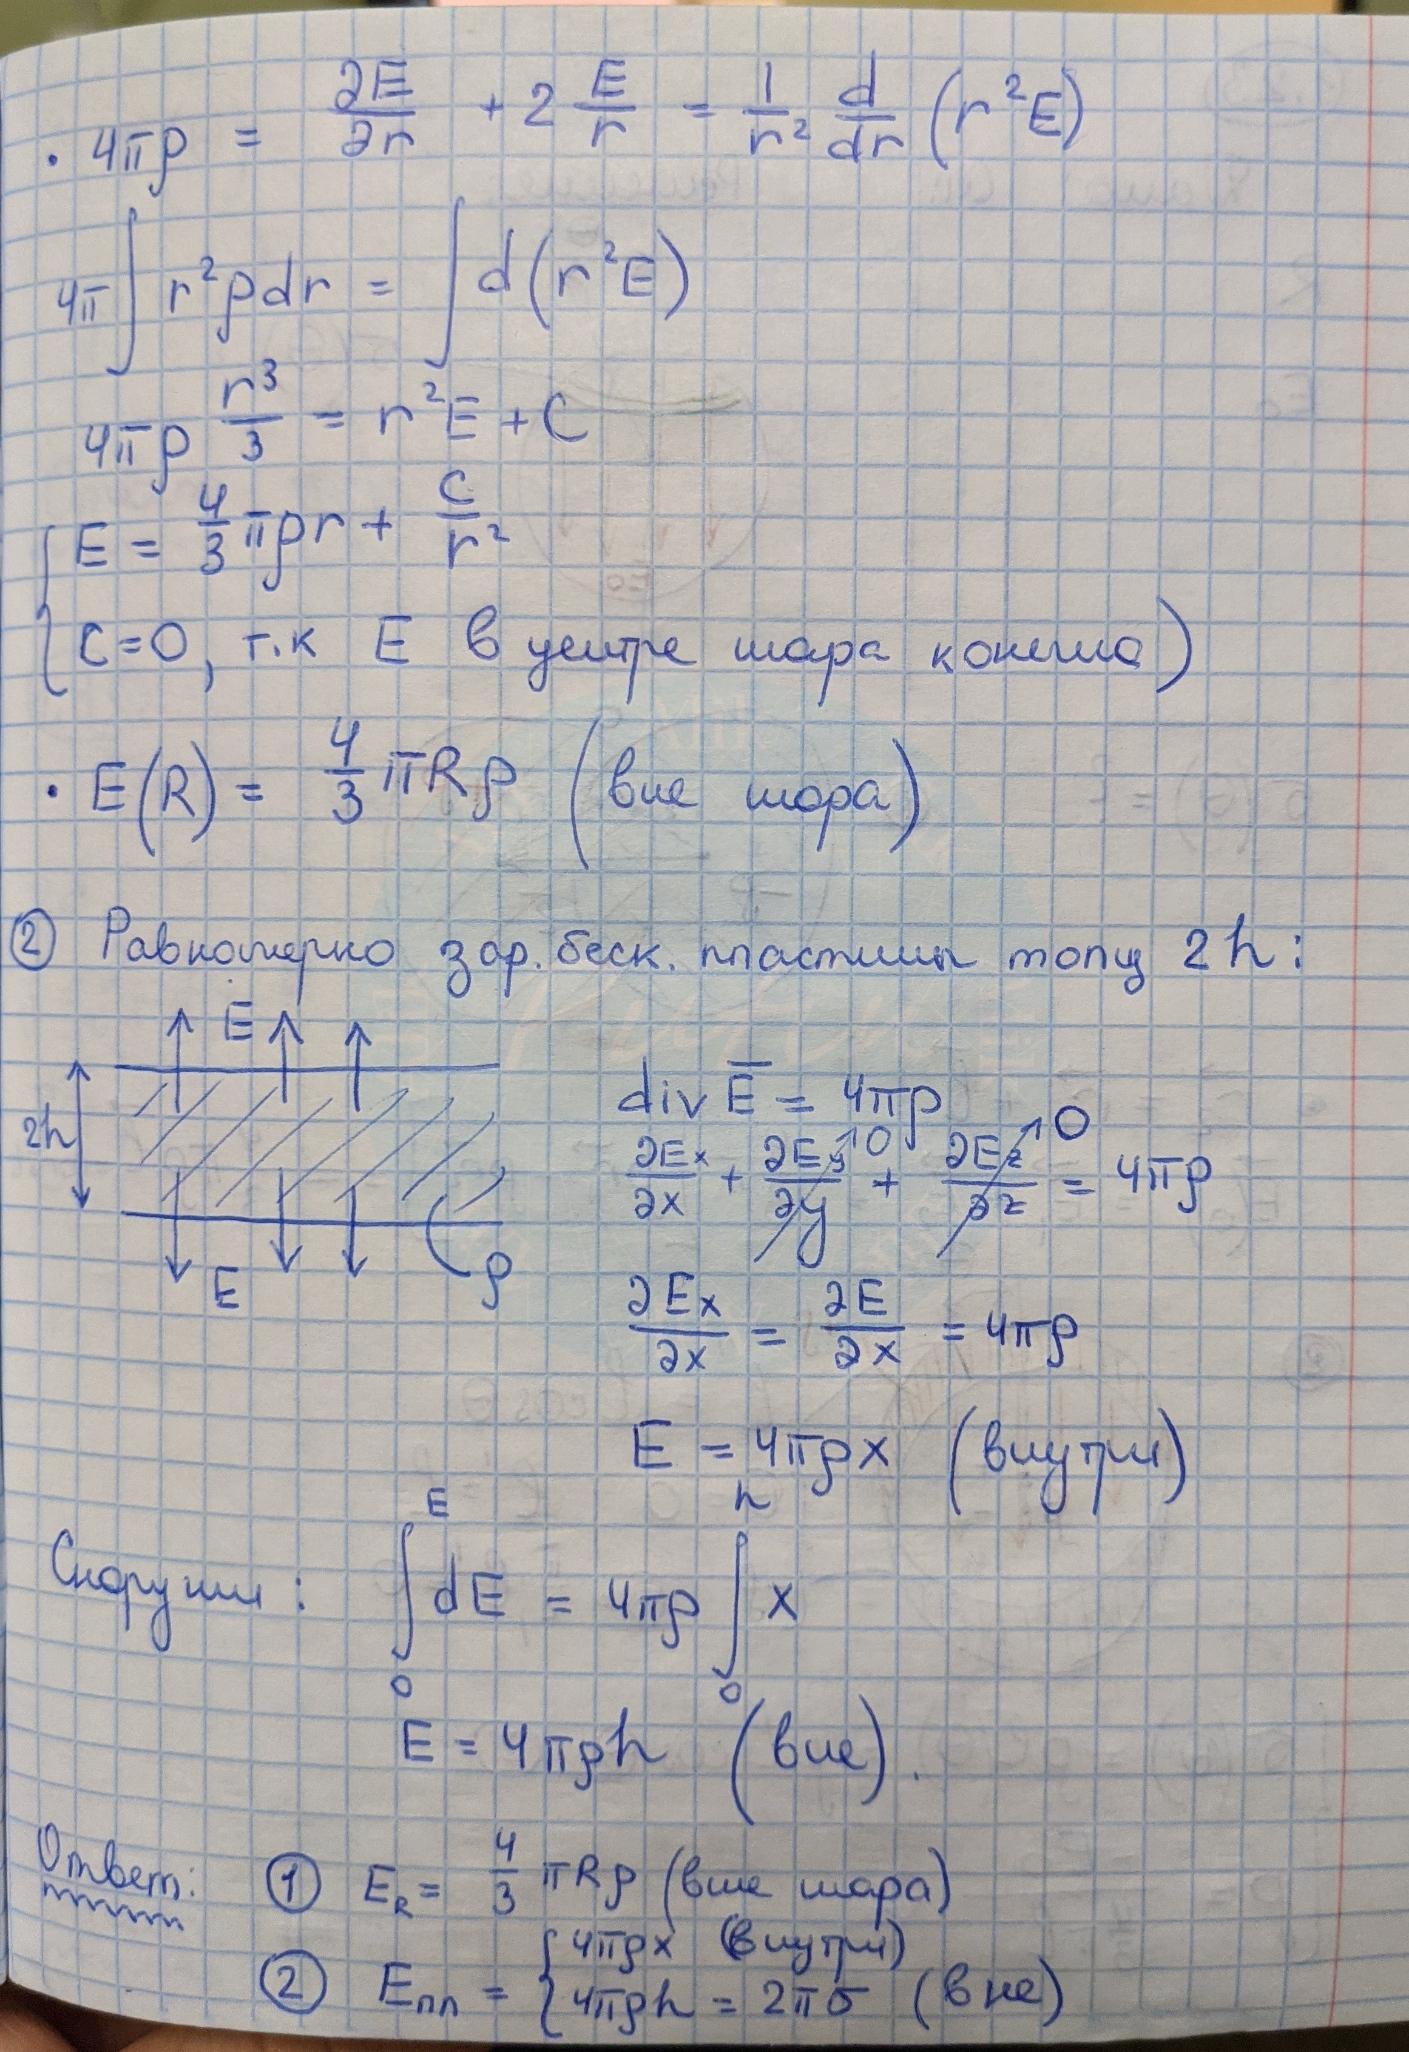 • 4πρ = ∂E/∂r + 2 E/r = 1/r² d/dr (r²E)
4π ∫ r²ρdr = ∫ d(r²E)
4πρ r³/3 = r²E + C
E = 4/3 πρr + C/r²
C=0, т.к E в центре шара конечно)
• E(R) = 4/3 πRρ (вне шара)
② Равномерно зар. беск. пластины толщ 2h:
E
2h
E
ρ
div E̅ = 4πρ
∂Eₓ/∂x + ∂Eᵧ/∂y ↗0 + ∂E_z/∂z ↗0 = 4πρ
∂Eₓ/∂x = ∂E/∂x = 4πρ
E = 4πρx (внутри)
Снаружи: ∫₀ᴱ dE = 4πρ ∫₀ʰ x
E = 4πρh (вне).
Ответ: ① E_R = 4/3 πRρ (вне шара)
② Eпл = { 4πρx (внутри)
4πρh = 2πσ (вне)